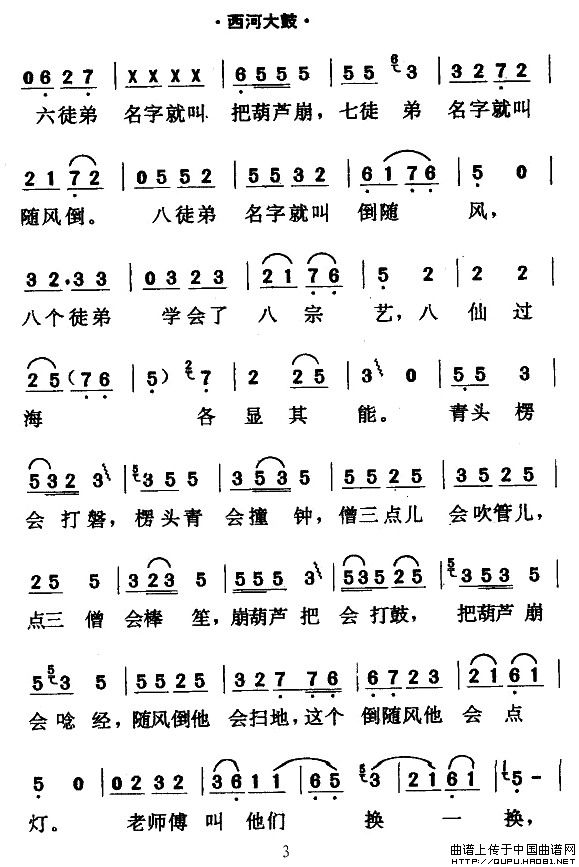 ·西河大鼓·
0 6 2 7 | X X X X | 6 5 5 5 5 | 5 5 6 3 | 3 2 7 2 |
六徒弟 名字就叫 把葫芦崩，七徒 弟 名字就叫
2 1 7 2 | 0 5 5 2 | 5 5 3 2 | 6 1 7 6 | 5 0 |
随风倒。 八徒弟 名字就叫 倒随 风，
3 2·3 3 | 0 3 2 3 | 2 1 7 6 | 5 2 | 2 2 |
八个徒弟 学会了 八 宗 艺，八 仙 过
2 5（7 6 | 5）2 7 | 2 2 5 | 3 0 | 5 5 3 |
海 各 显 其 能。 青头 楞
5 3 2 3 | 5 3 5 5 | 3 5 3 5 | 5 5 2 5 | 3 5 2 5 |
会 打 磬，楞头青 会 撞 钟，僧三点儿 会吹管儿，
2 5 5 | 3 2 3 5 | 5 5 5 3 | 5 3 5 2 5 | 5 3 5 3 5 |
点三 僧 会棒 笙，崩葫芦 把 会 打鼓， 把葫芦 崩
5 5 3 5 | 5 5 2 5 | 3 2 7 7 6 | 6 7 2 2 | 2 1 6 1 |
会 唸 经，随风倒他 会扫地，这个 倒随风他 会 点
5 0 | 0 2 3 2 | 3 6 1 1 | 6 5 5 3 | 2 1 6 1 | 1 5 - |
灯。 老师傅 叫 他们 换 一 换，
3
曲谱上传于中国曲谱网
http://QUPU.HAO81.NET